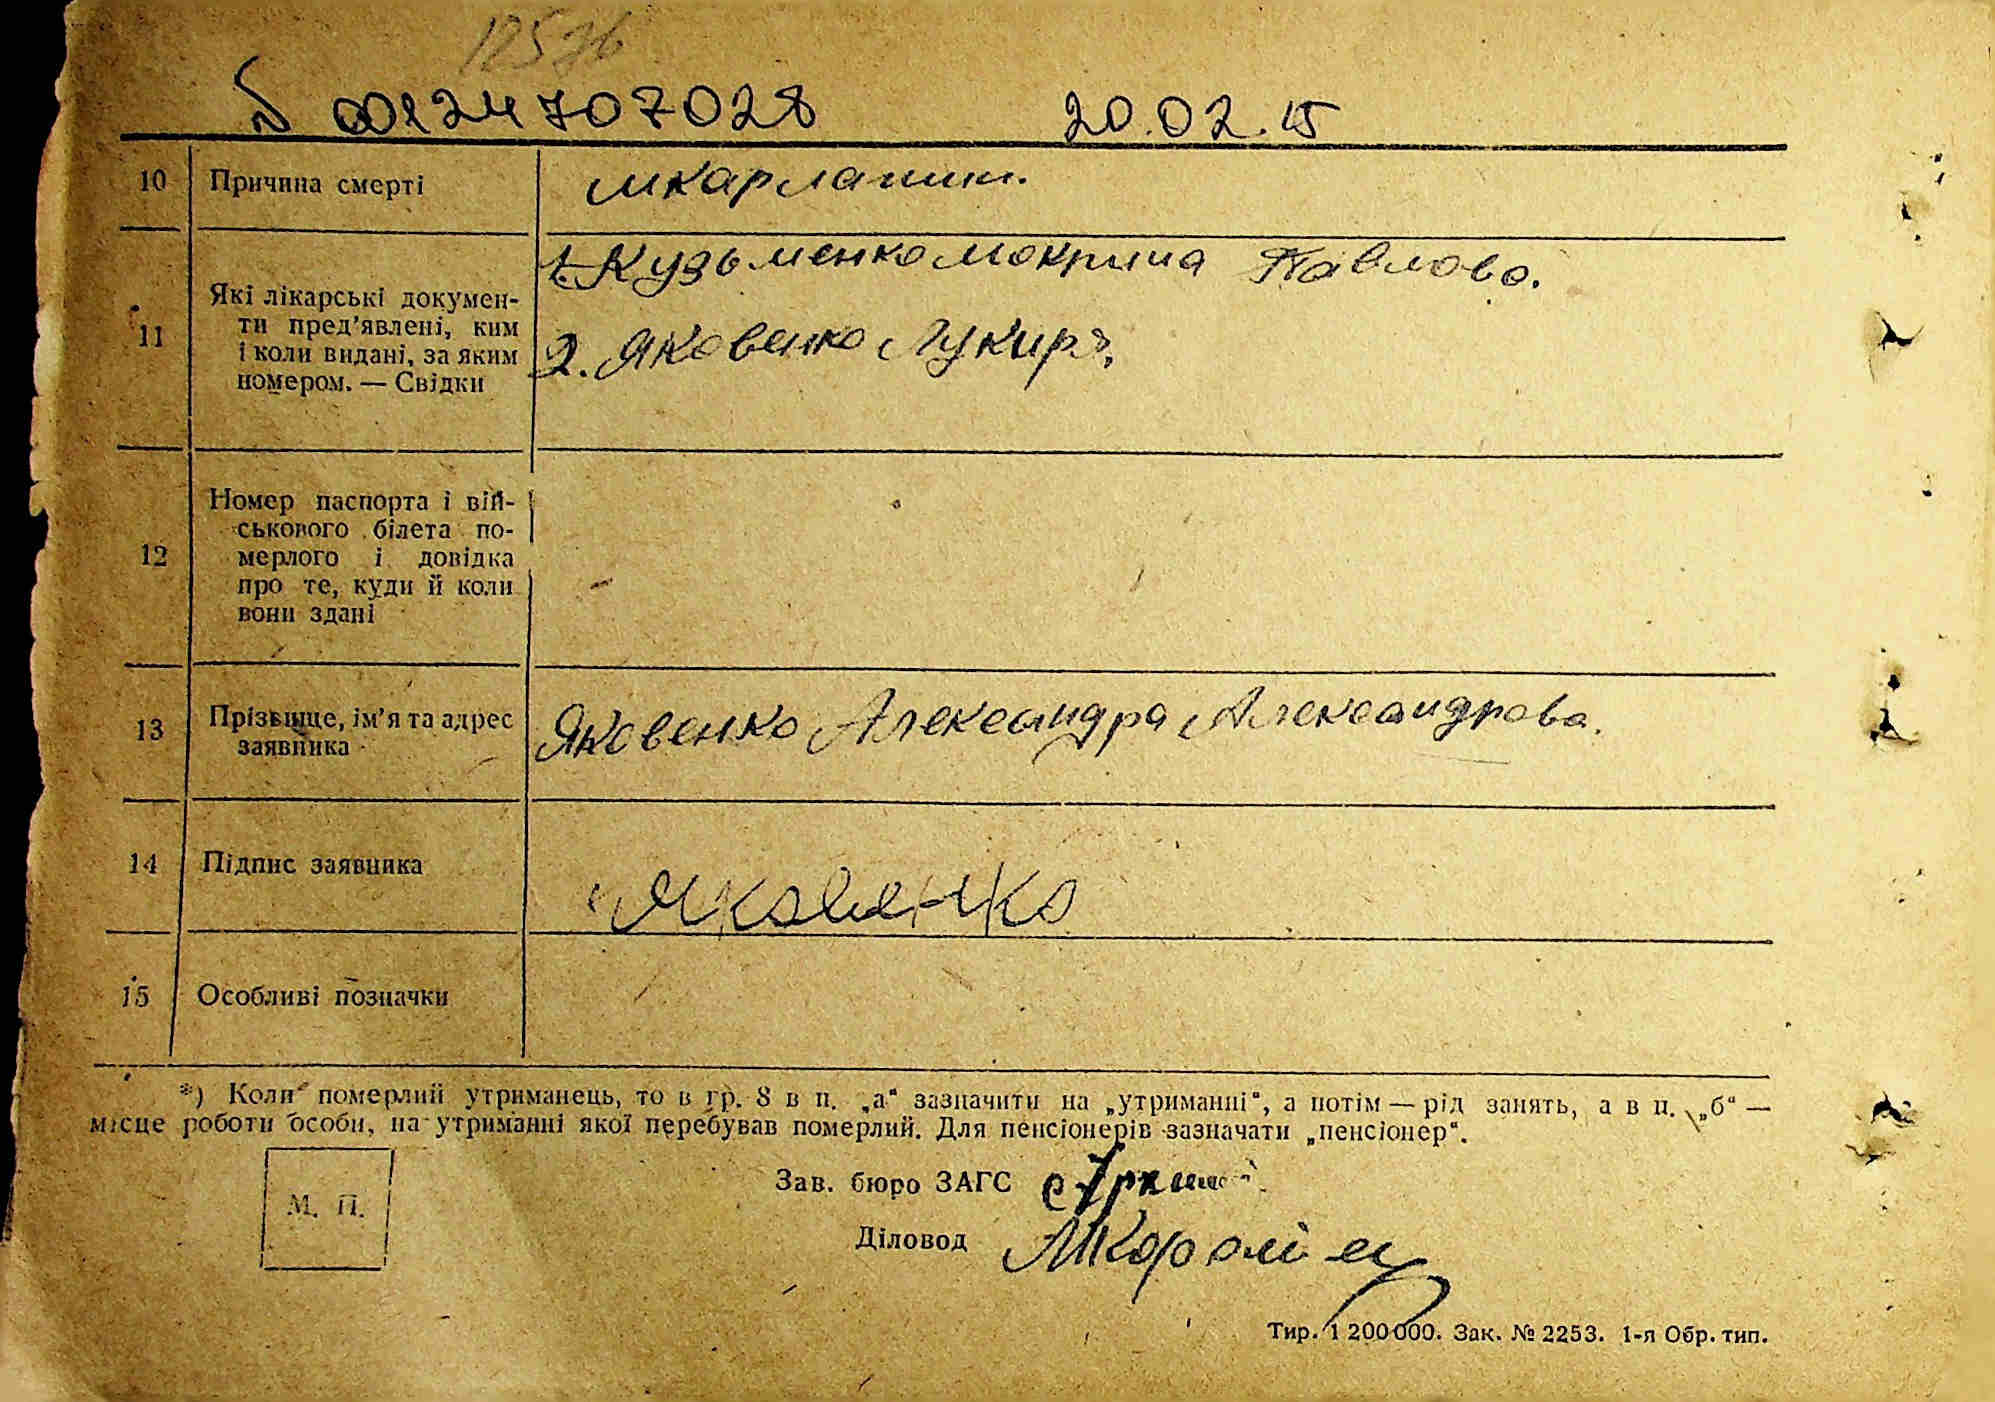 12576
N 00124707028 20.02.15
10 Причина смерті
шкарлатин.
11 Які лікарські докумен-
ти пред'явлені, ким
і коли видані, за яким
номером. — Свідки
1. Кузьменко Мокрина Павлова.
2. Яковенко Лукиръ.
12 Номер паспорта і вій-
ськового білета по-
мерлого і довідка
про те, куди й коли
вони здані
13 Прізвище, ім'я та адрес
заявника
Яковенко Александра Александрова.
14 Підпис заявника
Яковенко
15 Особливі позначки
*) Коли померлий утриманець, то в гр. 8 в п. „а“ зазначити на „утриманні“, а потім — рід занять, а в п. „б“ —
місце роботи особи, на утриманні якої перебував померлий. Для пенсіонерів зазначати „пенсіонер“.
М. П.
Зав. бюро ЗАГС
Діловод
Тир. 1 200 000. Зак. № 2253. 1-я Обр. тип.